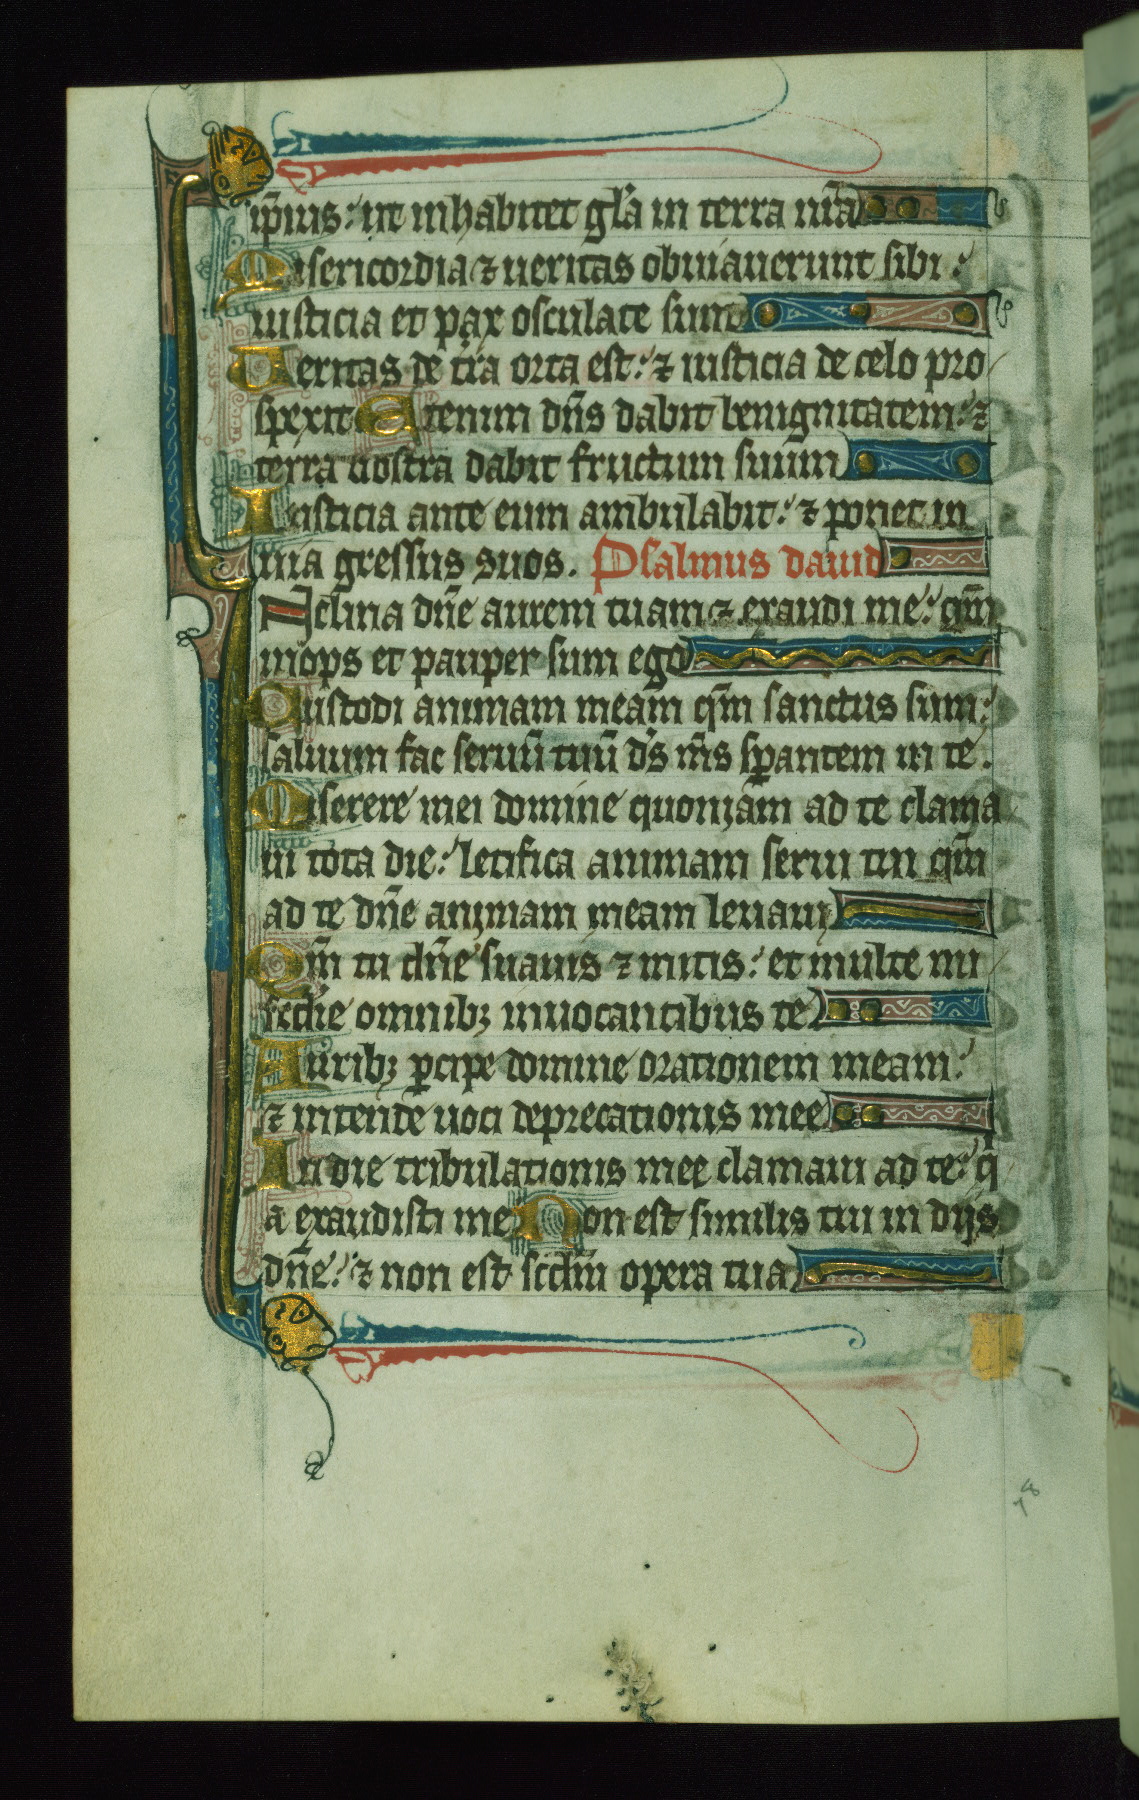 ip̄ius: ut inhabitet gl̄a in terra nr̄a
Misericordia ⁊ ueritas obuiauerunt sibi:
iusticia et pax osculate sunt
Ueritas de tr̄a orta est: ⁊ iusticia de celo pro
spexit Etenim dn̄s dabit benignitatem: ⁊
terra nostra dabit fructum suum
Iusticia ante eum ambulabit: ⁊ ponet in
uia gressus suos. Psalmus dauid
Inclina dn̄e aurem tuam ⁊ exaudi me: qm̄
inops et pauper sum ego
Custodi animam meam qm̄ sanctus sum:
saluum fac seruū tuū ds̄ ms̄ sꝑantem in te.
Miserere mei domine quoniam ad te clama
ui tota die: letifica animam serui tui qm̄
ad te dn̄e animam meam leuaui
Qm̄ tu dn̄e suauis ⁊ mitis: et multe mi
sc̄die omnibꝫ inuocantibus te
Auribꝫ ꝑcipe domine orationem meam:
⁊ intende uoci deprecationis mee
In die tribulationis mee clamaui ad te: q̄
a exaudisti me Non est similis tui in dijs
dn̄e: ⁊ non est scd̄m opera tua
78